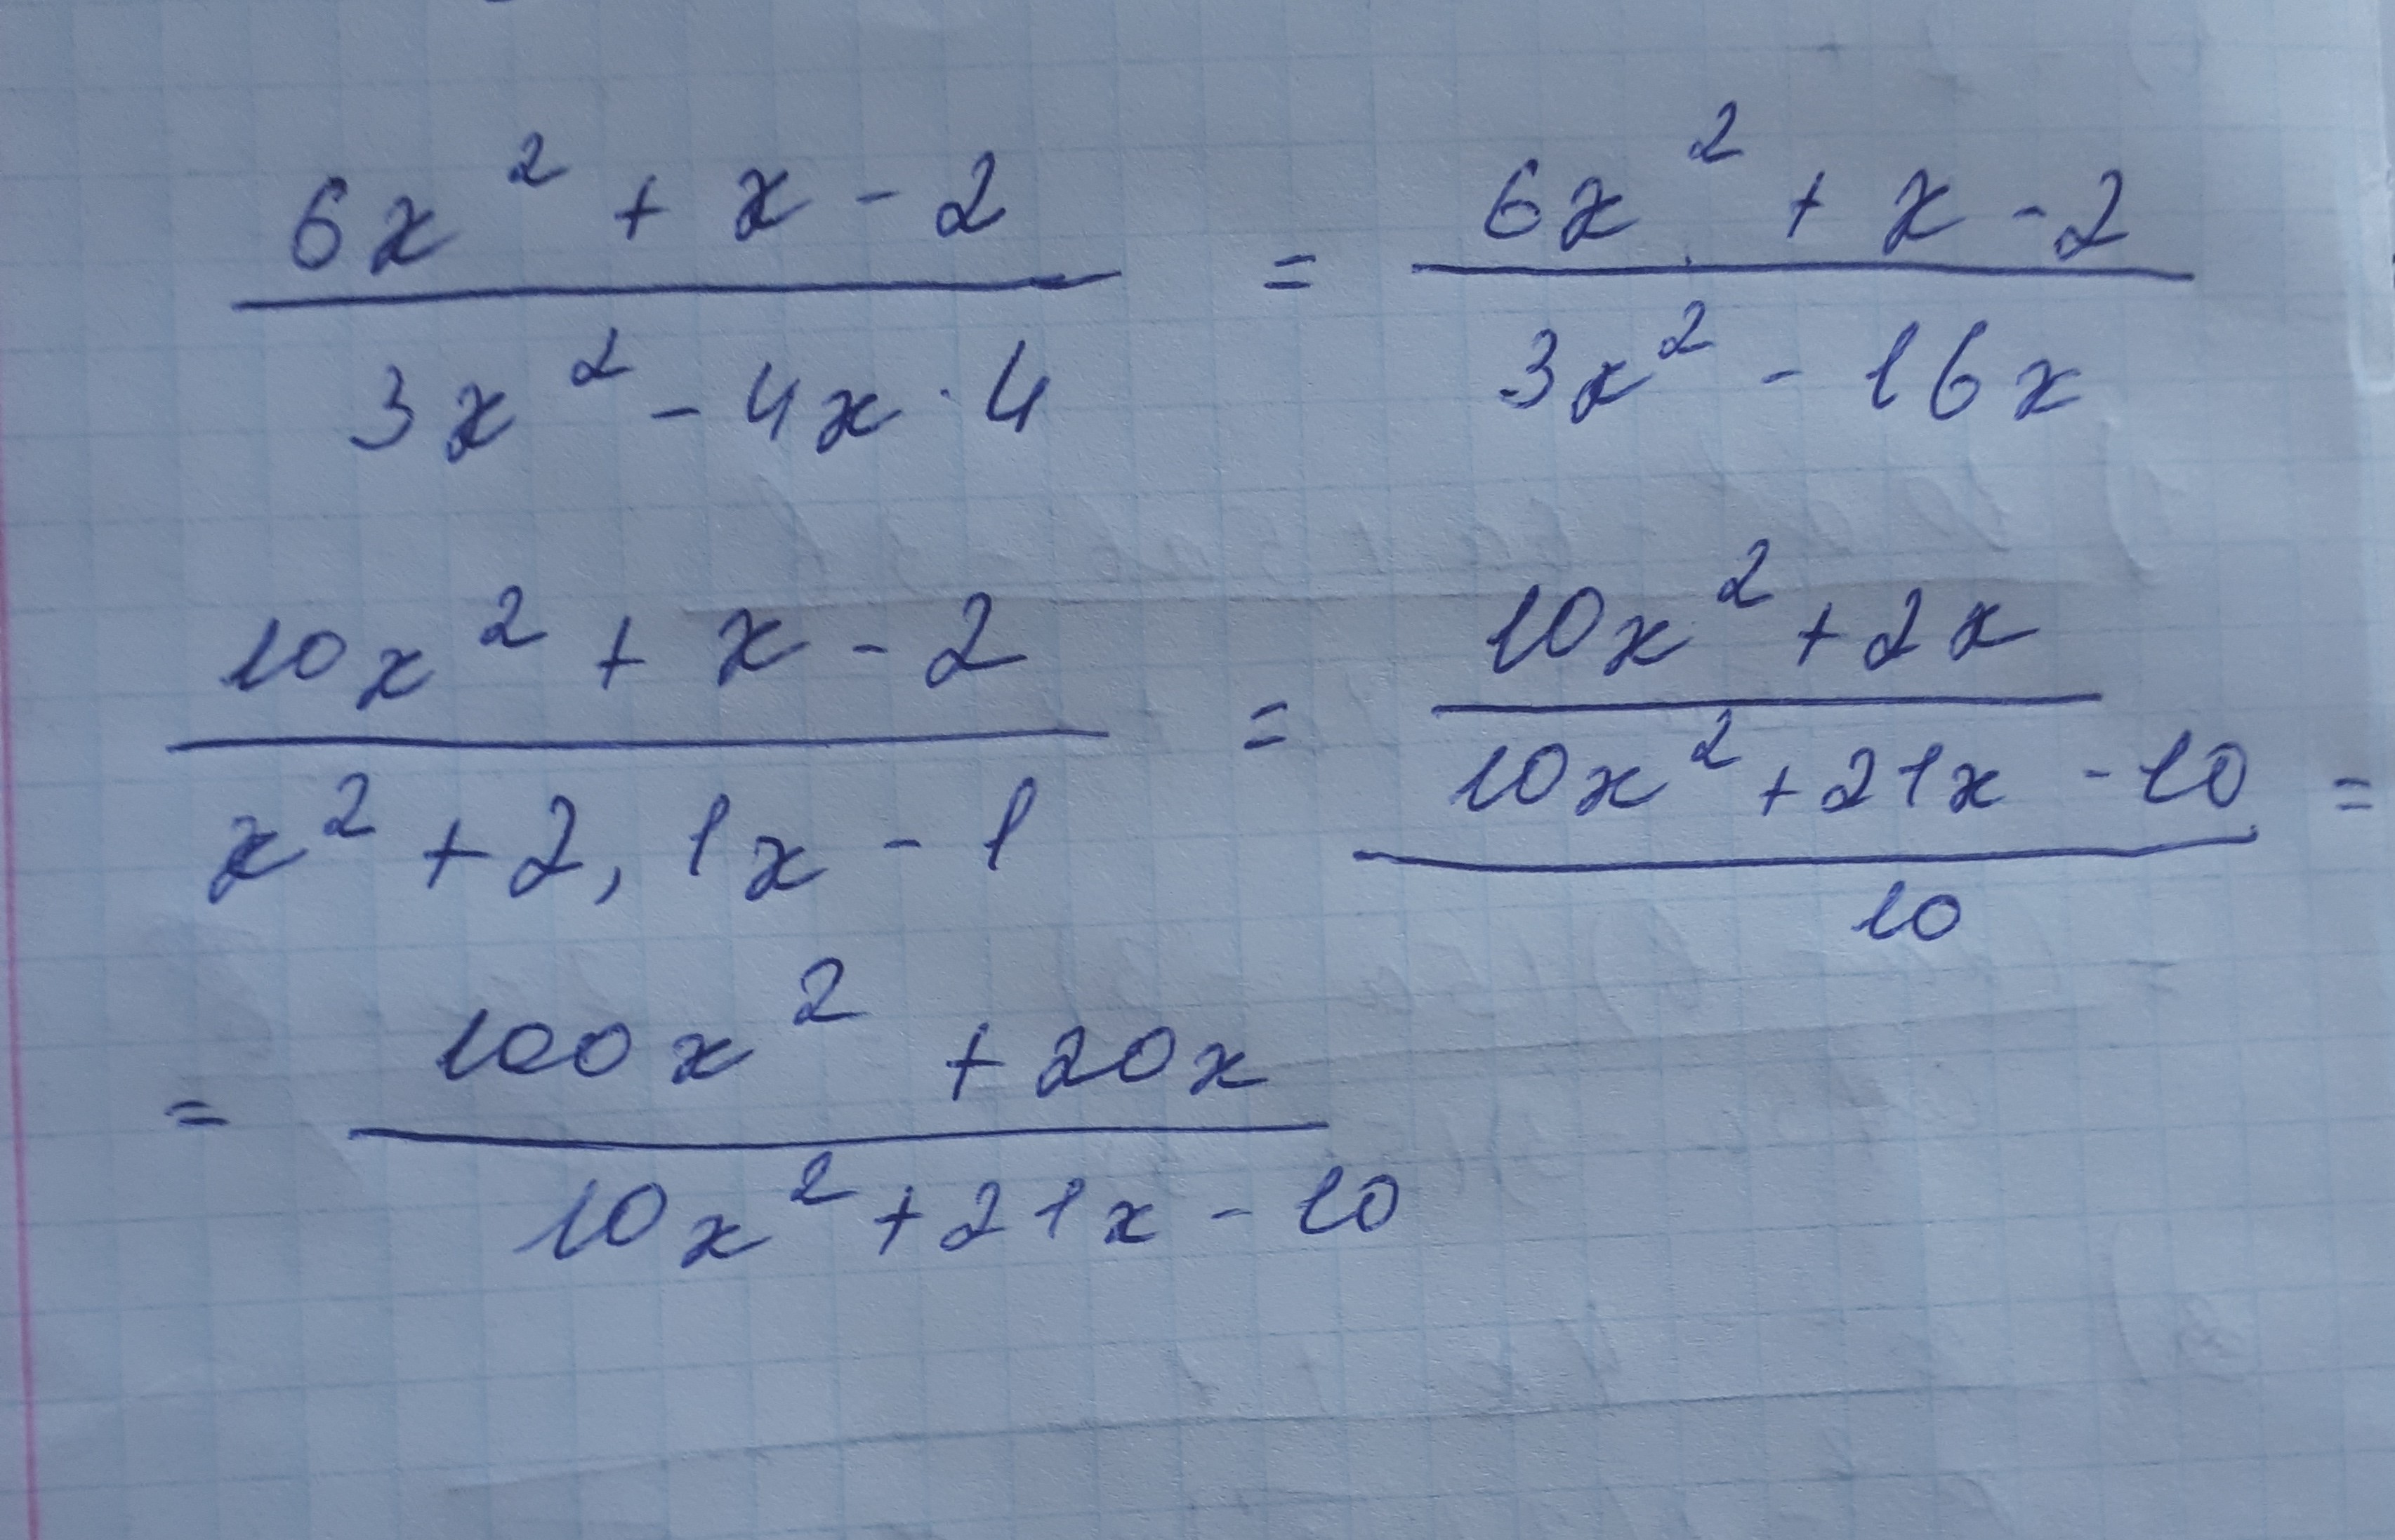 (6x² + x - 2)/(3x² - 4x · 4) = (6x² + x - 2)/(3x² - 16x)
(10x² + x - 2)/(x² + 2,1x - 1) = (10x² + 2x)/((10x² + 21x - 10)/10) =
= (100x² + 20x)/(10x² + 21x - 10)